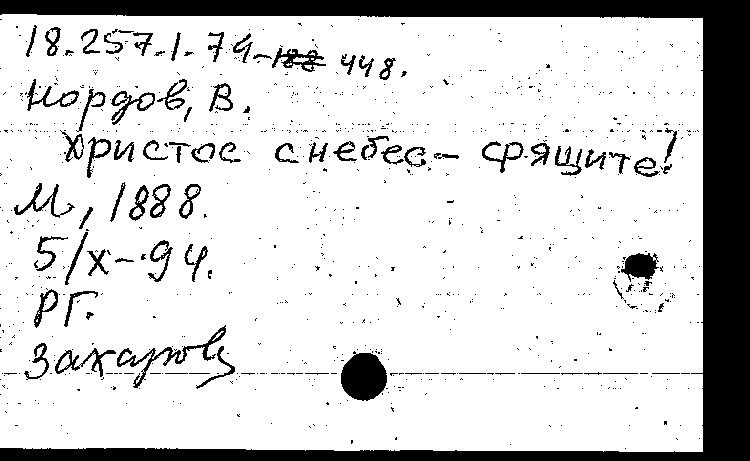 18.257.1.74-188 448.
Нордов, В.
Христос с небес – срящите!
М, 1888.
5/X-94.
РГ.
Захарова